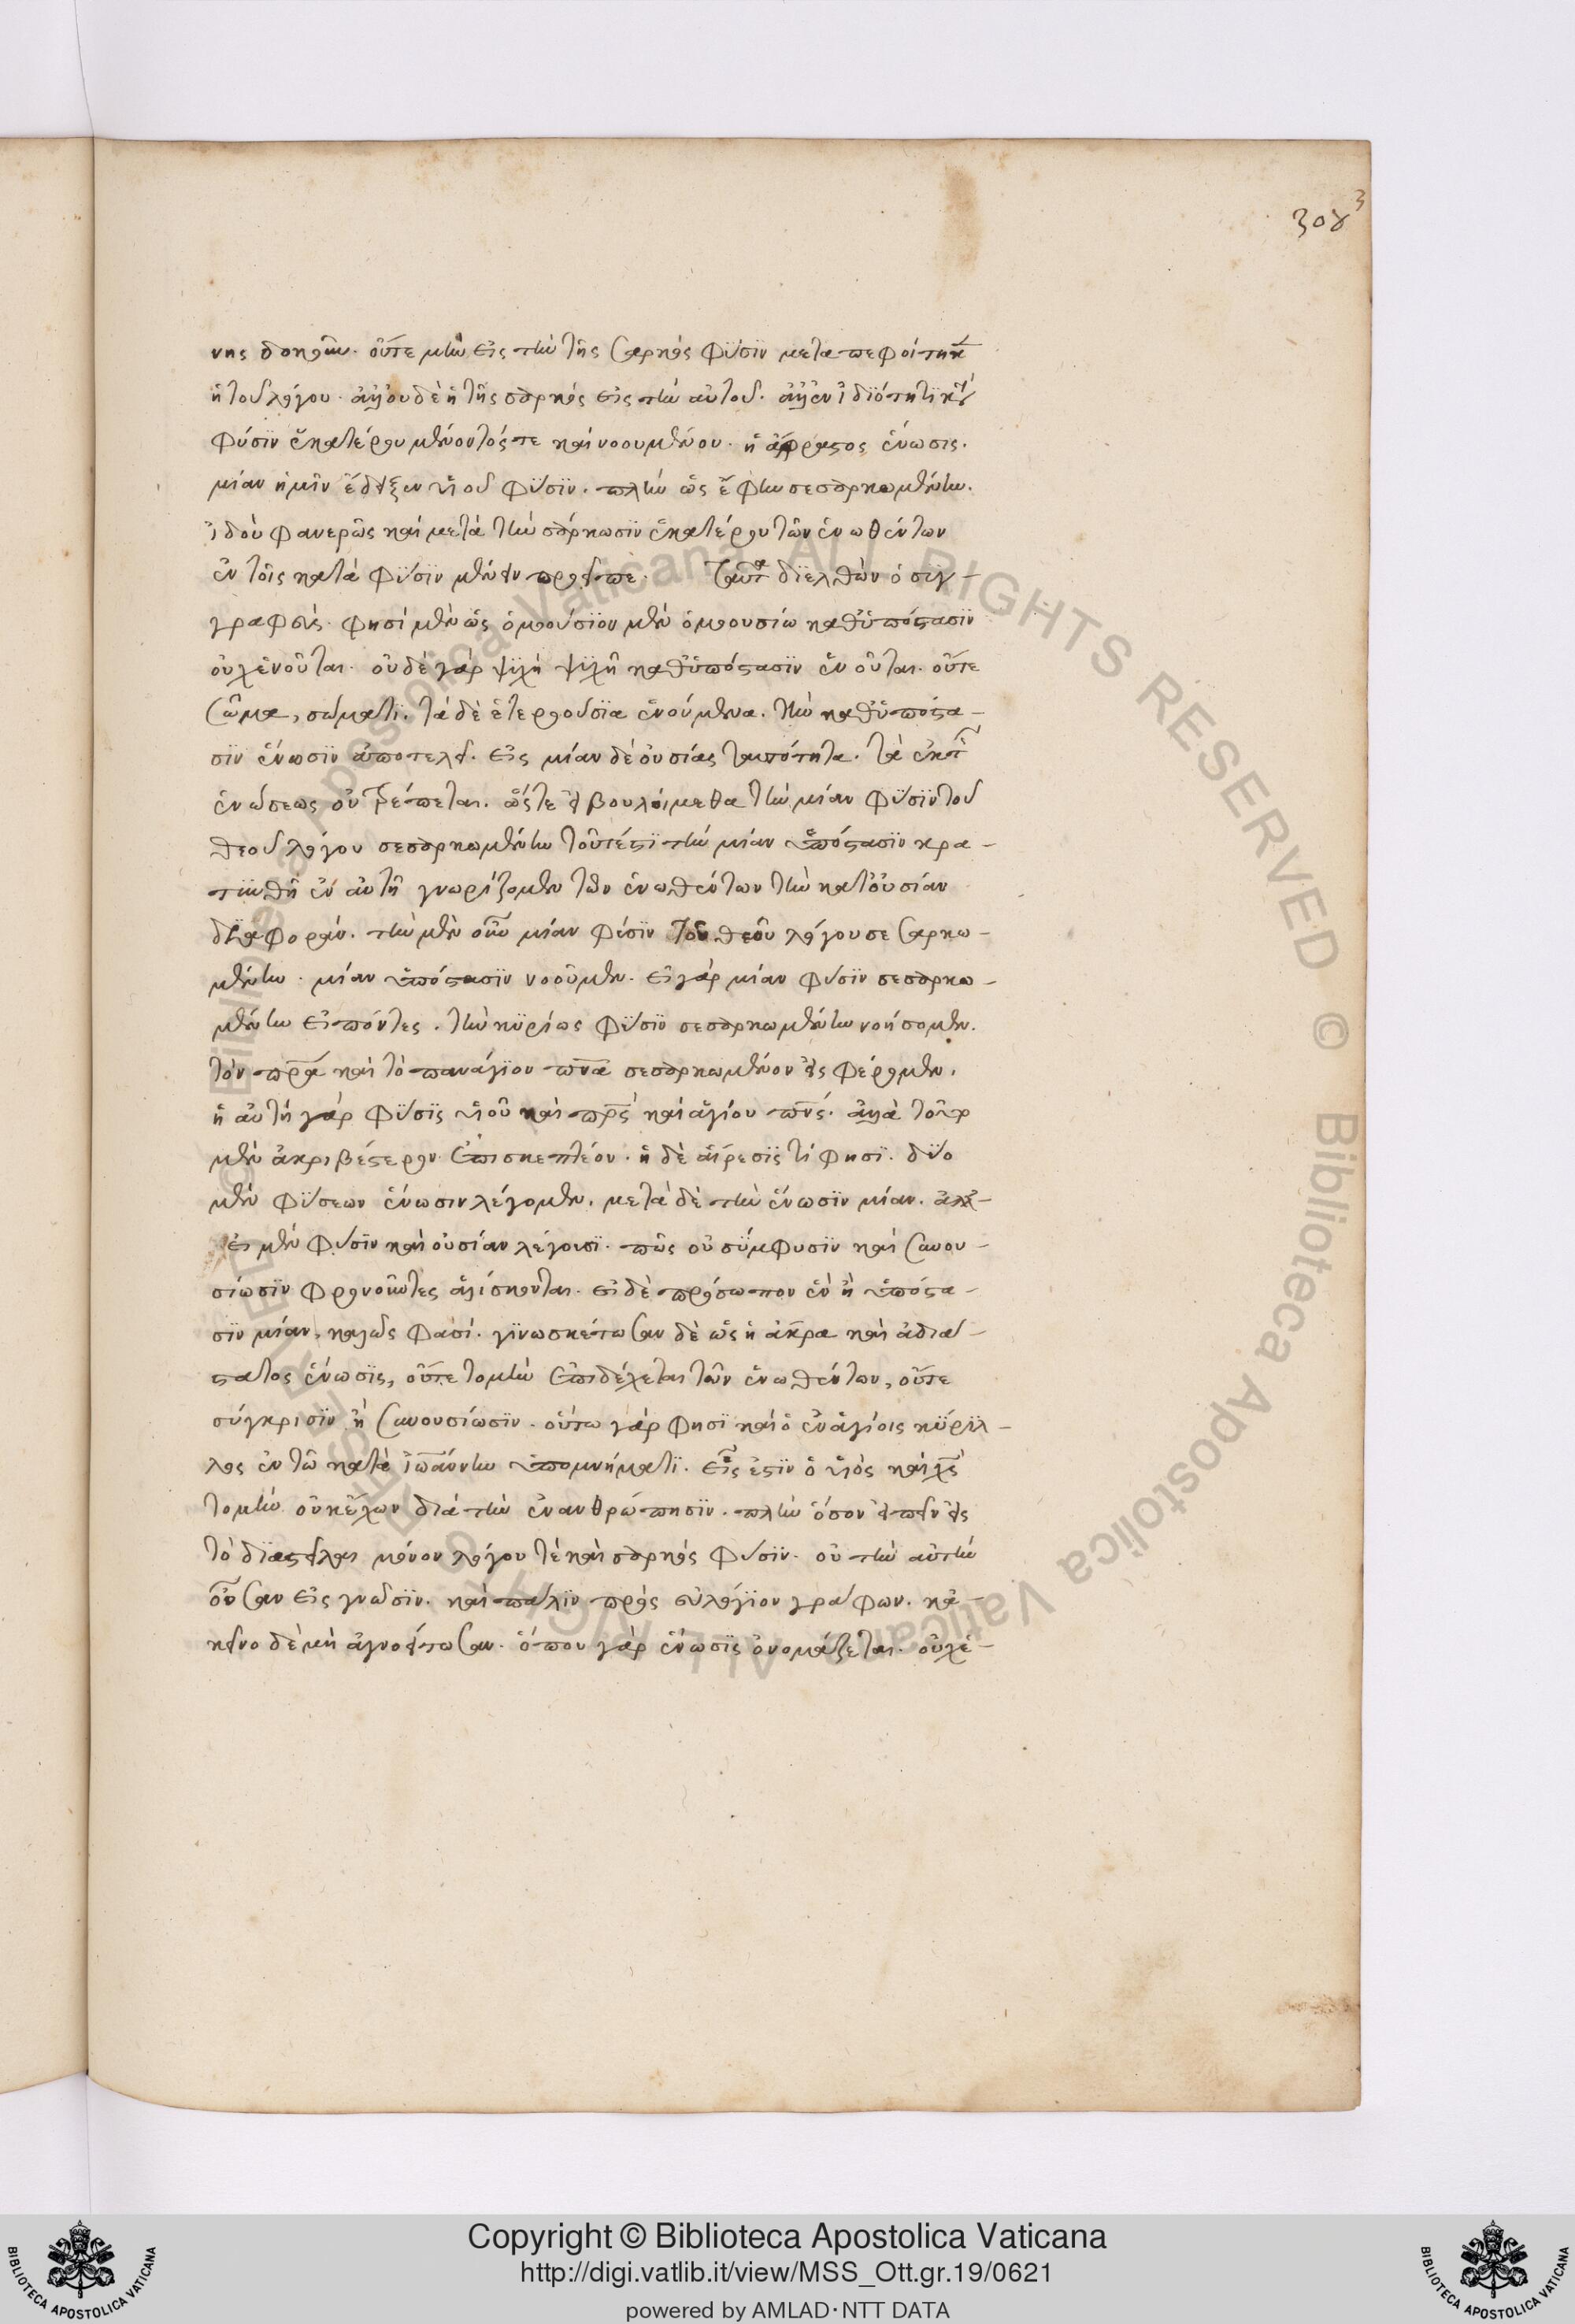 308
3
νης δοκοῦν. οὔτε μὴν εἰς τὴν τῆς σαρκὸς φύσιν μεταπεφοίτηκ
ἡ τοῦ λόγου. ἀλλ' οὐδὲ ἡ τῆς σαρκὸς εἰς τὴν αὐτοῦ. ἀλλ' ἐν ἰδιότητι κατὰ
φύσιν ἑκατέρου μένοντός τε καὶ νοουμένου. ἡ ἄφραστος ἕνωσις.
μίαν ἡμῖν ἔδειξεν υἱοῦ φύσιν. πλὴν ὡς ἔφην σεσαρκωμένην.
ἰδοὺ φανερῶς καὶ μετὰ τὴν σάρκωσιν ἑκατέρου τῶν ἑνωθέντων
ἐν τοῖς κατὰ φύσιν μένειν προεῖπε. Ταῦτα διελθὼν ὁ συγ-
γραφεύς. φησὶ μὲν ὡς ὁμοούσιον μὲν ὁμοουσίω καθ' ὑπόστασιν
οὐχ ἑνοῦται. οὐδὲ γὰρ ψυχὴ ψυχῇ καθ' ὑπόστασιν ἑνοῦται. οὔτε
σῶμα, σώματι. τὰ δὲ ἑτεροούσια ἑνούμενα. τὴν καθ' ὑπόστα-
σιν ἕνωσιν ἀποτελεῖ. εἰς μίαν δὲ οὐσίας ταυτότητα. τὰ ἐκ τῆς
ἑνώσεως οὐ τρέπεται. ὥστε εἰ βουλοίμεθα τὴν μίαν φύσιν τοῦ
θεοῦ λόγου σεσαρκωμένην τουτέστι τὴν μίαν ὑπόστασιν κρα-
τυνθῆ ἐν αὐτῇ γνωρίζομεν τῶν ἑνωθέντων τὴν κατ' οὐσίαν
διαφοράν. τὴν μὲν οὖν μίαν φύσιν τοῦ θεοῦ λόγου σεσαρκω-
μένην. μίαν ὑπόστασιν νοοῦμεν. εἰ γὰρ μίαν φύσιν σεσαρκω-
μένην εἰπόντες. τὴν κυρίως φύσιν σεσαρκωμένην νοήσομεν.
τὸν πρα καὶ τὸ πανάγιον πνα σεσαρκωμένον εἰσφέρομεν.
ἡ αὐτὴ γὰρ φύσις υἱοῦ καὶ πρς καὶ ἁγίου πνς. ἀλλὰ τοῦτο
μὲν ἀκριβέστερον ἐπισκεπτέον. ἡ δὲ αἵρεσις τί φησι. δύο
μὲν φύσεων ἕνωσιν λέγομεν. μετὰ δὲ τὴν ἕνωσιν μίαν. ἀλλ'-
εἰ μὲν φύσιν καὶ οὐσίαν λέγουσι. πῶς οὐ σύμφυσιν καὶ συνου-
σίωσιν φρονοῦντες ἁλίσκονται. εἰ δὲ πρόσωπον ἓν ἢ ὑπόστα-
σιν μίαν, καλῶς φασί. γινωσκέτωσαν δὲ ὡς ἡ ἄκρα καὶ ἀδιάσ-
τατος ἕνωσις, οὔτε τομὴν ἐπιδέχεται τῶν ἑνωθέντων, οὔτε
σύγκρισιν ἢ συνουσίωσιν. οὕτω γάρ φησι καὶ ὁ ἐν ἁγίοις κύριλ-
λος ἐν τῶ κατὰ ἰωάννην ὑπομνήματι. εἷς ἐστιν ὁ υἱὸς καὶ χς
τομὴν οὐκ ἔχων διὰ τὴν ἐνανθρώπησιν. πλὴν ὅσον εἰπεῖν εἰς
τὸ διαστεῖλαι μόνον λόγου τὲ καὶ σαρκὸς φύσιν. οὐ τὴν αὐτὴν
οὖσαν εἰς γνῶσιν. καὶ πάλιν πρὸς εὐλόγιον γράφων. κἀ-
κεῖνο δὲ μὴ ἀγνοείτωσαν. ὅπου γὰρ ἕνωσις ὀνομάζεται. οὐχ ἑ-
Copyright © Biblioteca Apostolica Vaticana
http://digi.vatlib.it/view/MSS_Ott.gr.19/0621
powered by AMLAD·NTT DATA
BIBLIOTECA APOSTOLICA VATICANA
BIBLIOTECA APOSTOLICA VATICANA
© Biblioteca Apostolica Vaticana ALL RIGHTS RESERVED © Biblioteca Apostolica Vaticana ALL RIGHTS RESERVED